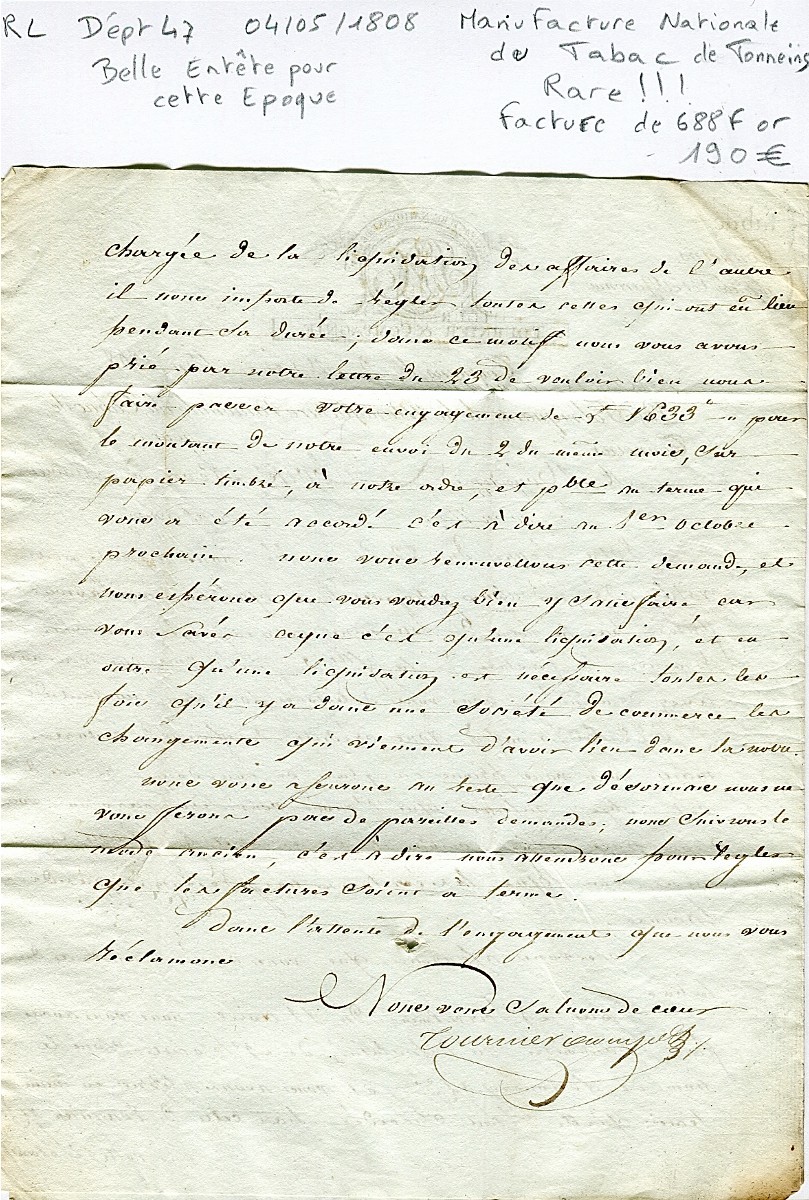 RL Dépt 47 04/05/1808 Manufacture Nationale
de Tabac de Tonneins
Belle Entête pour
cette Epoque
Rare !!!
facture de 688F or
190€
chargée de la liquidation des affaires de l'autre
il nous importe de régler toutes celles qui ont eu lieu
pendant sa durée, dans ce motif nous vous avons
prié par notre lettre du 23 de vouloir bien nous
faire passer votre engagement de 1633 " " pour
le montant de notre envoi du 2 du même mois, sur
papier timbré, à notre ordre, et pble au terme qui
vous a été accordé c'est à dire au 1er octobre
prochain. nous vous renouvellons cette demande, et
nous espérons que vous voudrez bien y satisfaire car
vous savés ce que c'est qu'une liquidation, et en
outre qu'une liquidation est nécessaire toutes les
fois qu'il y a dans une Société de commerce les
changements qui viennent d'avoir lieu dans la notre.
nous vous assurons au reste que désormais nous ne
vous ferons pas de pareilles demandes, nous suivrons le
mode ancien, c'est à dire nous attendrons pour régler
que les factures soient à terme.
Dans l'attente de l'engagement que nous vous
réclamons
Nous vous Saluons de cœur
Tournier